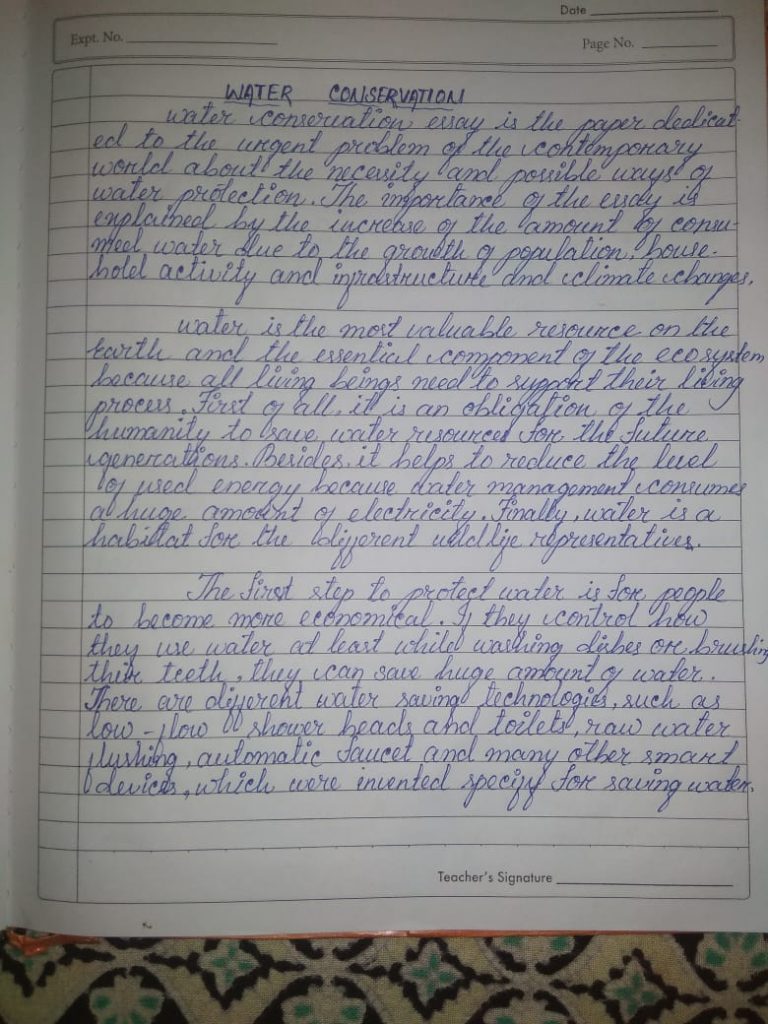 Date
Expt. No.
Page No.
WATER CONSERVATION
water conservation essay is the paper dedicat-
ed to the urgent problem of the contemporary
world about the necessity and possible ways of
water protection. The importance of the essay is
explained by the increase of the amount of consu-
med water due to the growth of population, house-
hold activity and infrastructure and climate changes.
water is the most valuable resource on the
Earth and the essential component of the ecosystem,
because all living beings need to support their living
process. First of all, it is an obligation of the
humanity to save water resources for the future
generations. Besides, it helps to reduce the level
of used energy because water management consumes
a huge amount of electricity. Finally, water is a
habitat for the different wildlife representatives.
The first step to protect water is for people
to become more economical. If they control how
they use water at least while washing dishes or brushing
their teeth, they can save huge amount of water.
There are different water saving technologies, such as
low-flow shower heads and toilets, raw water
flushing, automatic faucet and many other smart
devices, which were invented specify for saving water.
Teacher's Signature